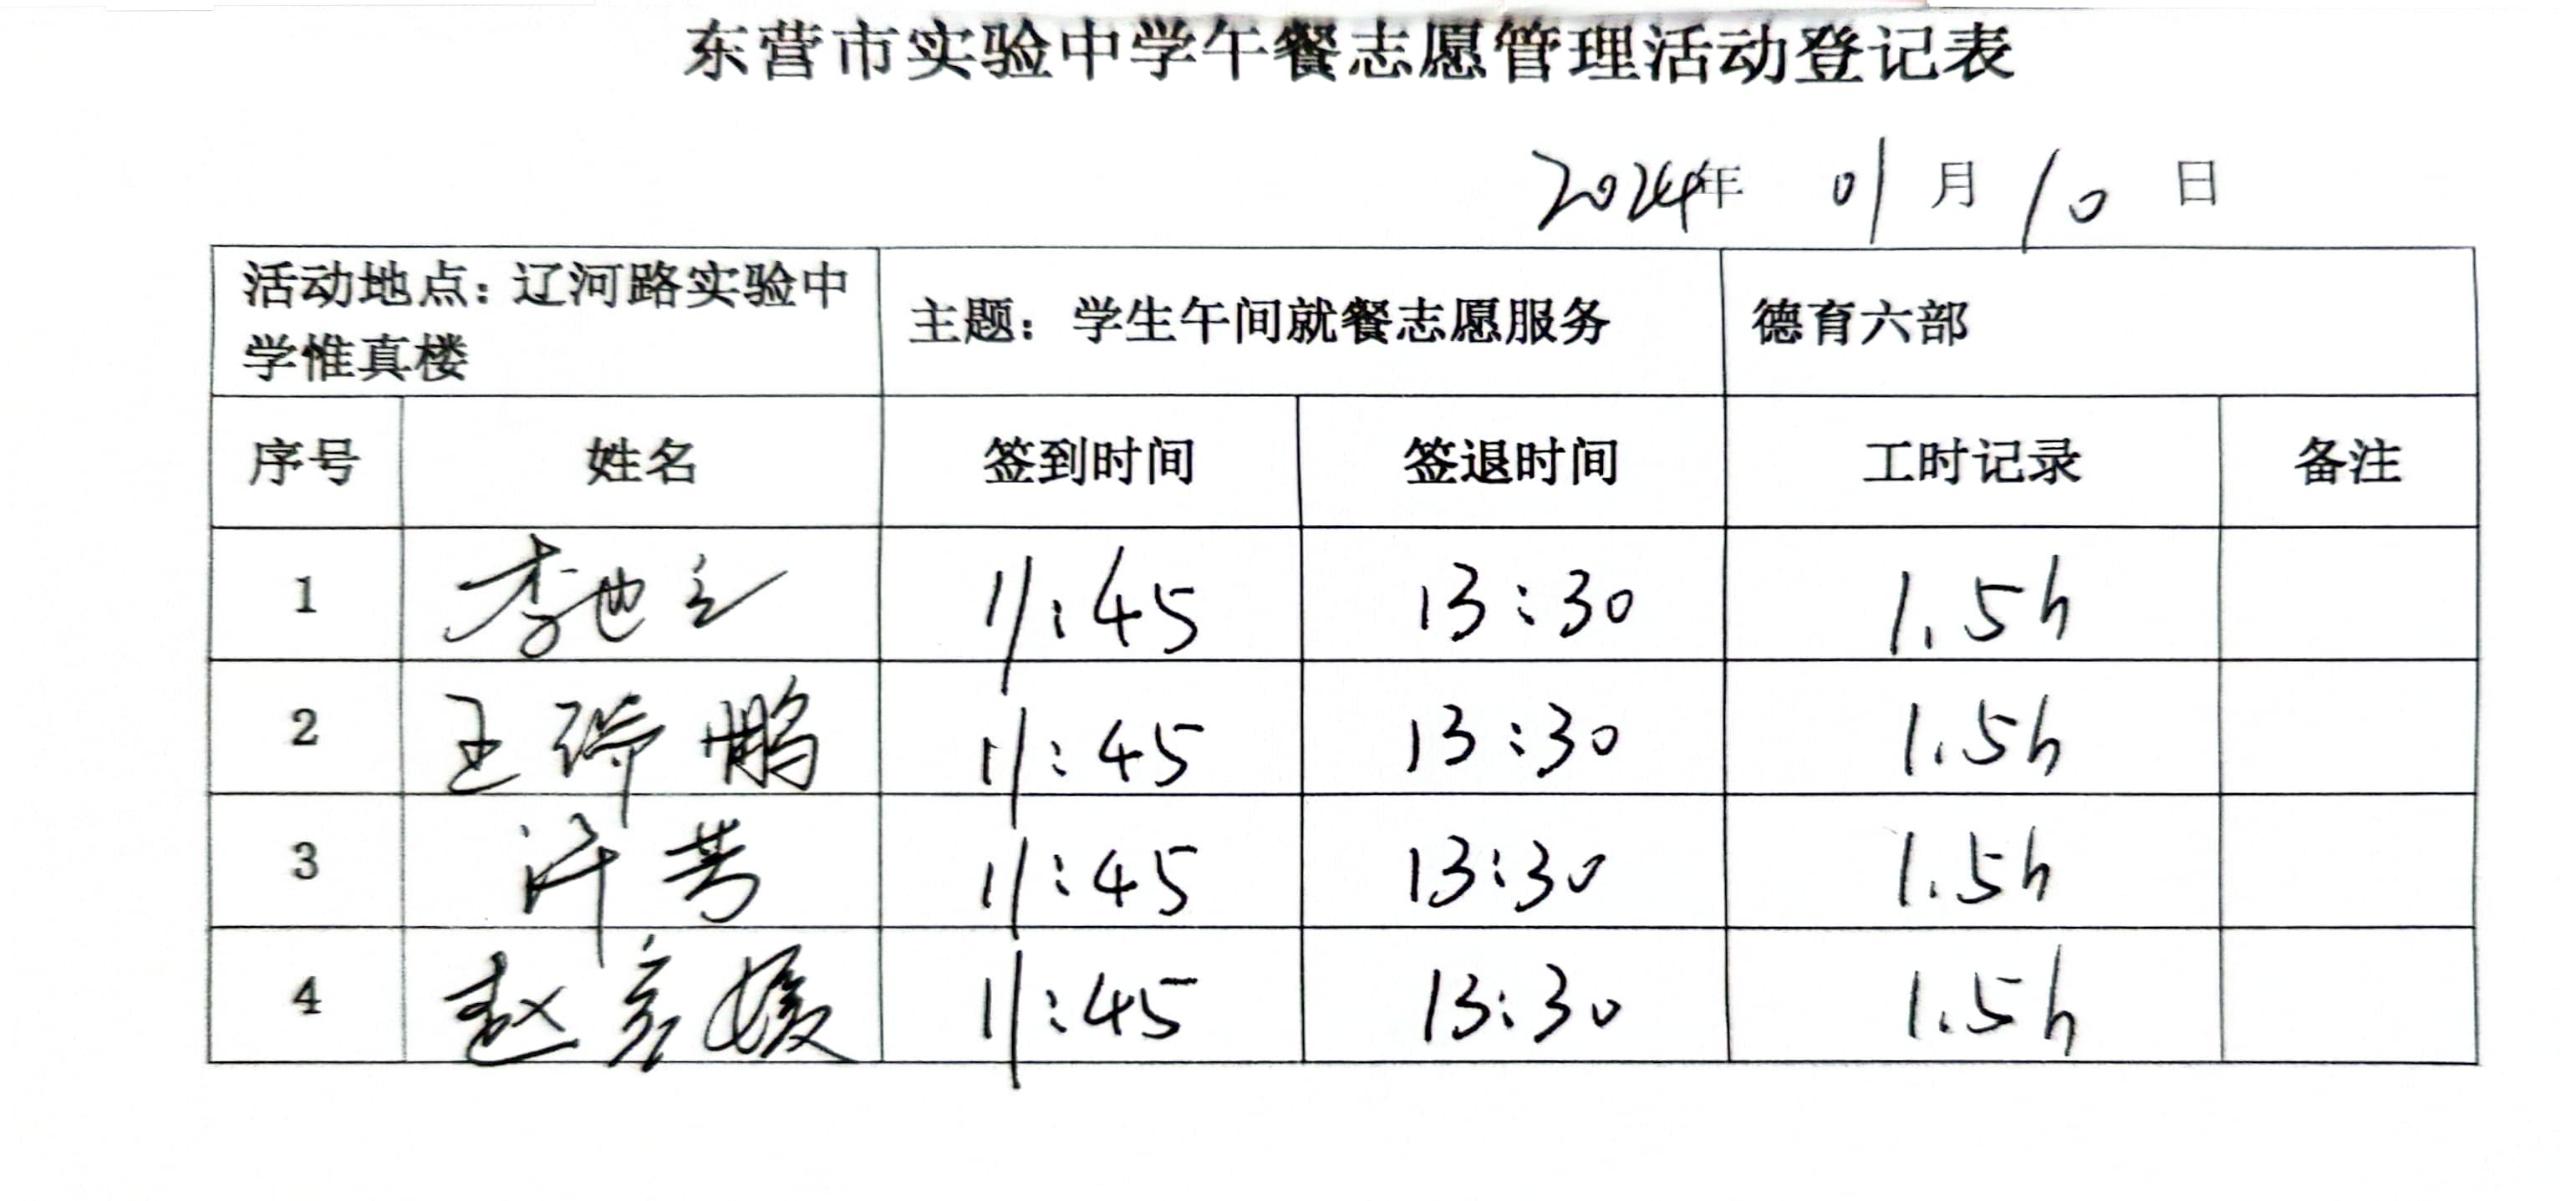 东营市实验中学午餐志愿管理活动登记表
2024年 01月10日
活动地点：辽河路实验中
学惟真楼
主题：学生午间就餐志愿服务
德育六部
序号 姓名 签到时间 签退时间 工时记录 备注
1 李 11:45 13:30 1.5h
2 王 鹏 11:45 13:30 1.5h
3 许芳 11:45 13:30 1.5h
4 赵彦媛 11:45 13:30 1.5h